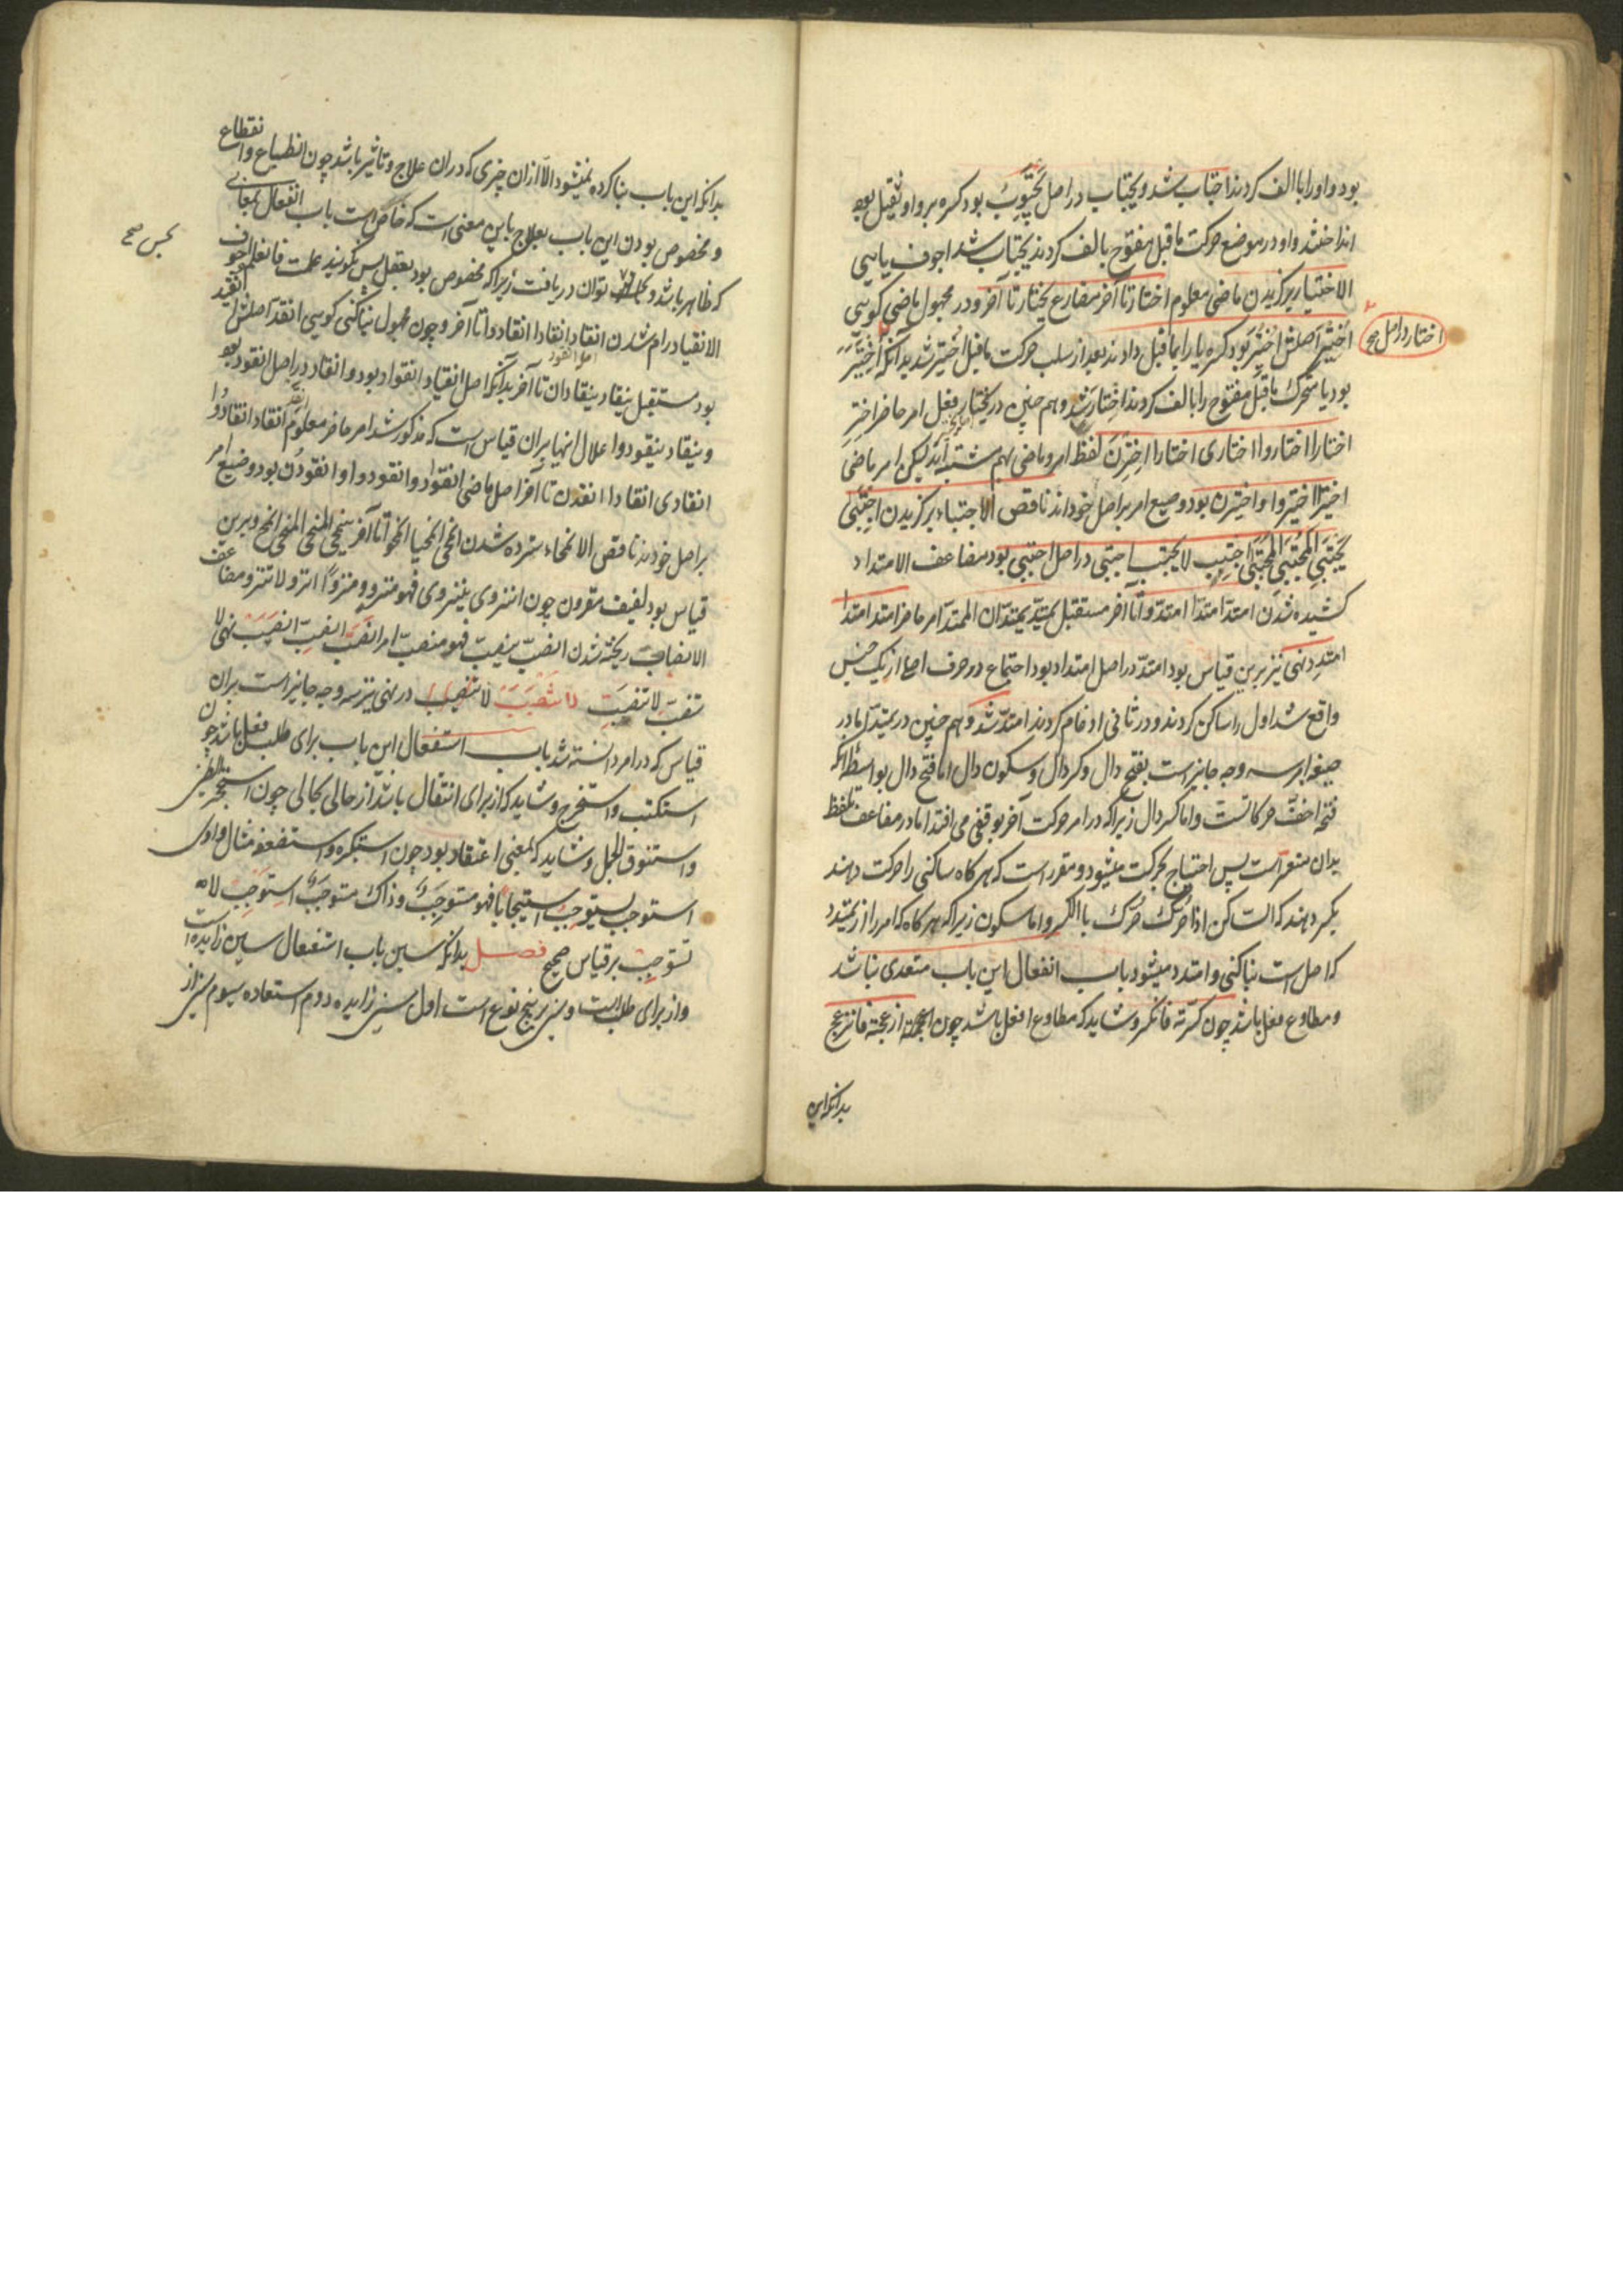 بود واو را با الف کردند اجتاب شد و یجتاب در اصل یَجْتَوِبُ بود کسره بر واو ثقیل بود
انداختند واو در موضع حرکت ماقبل مفتوح بالف کردند یجتاب شد اجوف یایی
الاختیار برگزیدن ماضی معلوم اختار تا آخر مضارع یختار تا آخر و در مجهول ماضی گویی
اُخْتِیرَ اصلش اُخْتُیِرَ بود کسره یا را بماقبل دادند بعد از سلب حرکت ماقبل اختیر شد بدانکه اِخْتَیَرَ
اختار در اصل صح
بود یا متحرک ماقبل مفتوح را بالف کردند اختار شد و هم چنین در یختار فعل امر حاضر اِخْتَرْ
اختارا اختاروا اختاری اختارا اِخْتَرْنَ لفظ امر و ماضی بهم مشتبه اند لیکن امر ماضی
اختیرا اختیروا و اختیرن بود و صیغ امر بر اصل خوداند ناقص الاجتباء برگزیدن اجتبی
یجتبی المجتبی المجتبی اجتب لا یجتب اجتبی در اصل اجتبی بود مضاعف الامتداد
کشیده شدن امتد امتدا امتدوا تا آخر مستقبل یمتد یمتدان الممتد امر حاضر امتد امتد
امتدد نهی نیز برین قیاس بود امتد در اصل امتدد بود اجتماع دو حرف اصلی از یک جنس
واقع شد اول را ساکن کردند و در ثانی ادغام کردند امتد شد و هم چنین در یمتد اما در
صیغه امر سه وجه جایز است بفتح دال و کسر دال و سکون دال اما فتح دال بواسطه آنکه
فتحه اخف حرکاتست و اما کسر دال زیراکه در امر حرکت آخر بوقفی می افتد اما در مضاعف تلفظ
بدان متعذر است پس احتیاج بحرکت میشود و مقرر است که هر گاه ساکنی را حرکت دهند
بکسر دهند که الساکن اذا حُرِّکَ حُرِّکَ بالکسر و اما سکون زیراکه هر گاه که امر را از یمتدد
که اصل است بنا کنی و امتدد میشود باب انفعال این باب متعدی نباشد
و مطاوع فعل باشد چون کسرته فانکسر و شاید که مطاوع افعل باشد چون ازعجته فانزعج
بدانکه این
بدانکه این باب بنا کرده نمیشود الا ازان چیزی که دران علاج و تاثیر باشد چون انطباع و انقطاع
و مخصوص بودن این باب بعلاج باین معنی است که خاص است باب انفعال بمعانی
که ظاهر باشد و توان دریافت زیراکه مخصوص بود بعقل پس نگویند علمت فانعلم اجوف
بحس صح
الانقیاد رام شدن انقاد انقادا انقادوا تا آخر و چون مجهول بنا کنی گویی انقید اصلش انقود
بود مستقبل ینقاد ینقادان تا آخر بدانکه اصل انقیاد انقواد بود و انقاد در اصل انقود بود
و ینقاد ینقود و اعلال اینها بران قیاس است که مذکور شد امر حاضر معلوم انقد انقادا انقادوا
انقادی انقادا انقدن تا آخر اصل ماضی انقودا و انقودوا و انقودن بود و صیغ امر
بر اصل خودند ناقص الانمحاء سترده شدن انمحی انمحیا انمحوا تا آخر ینمحی المنمحی المنمحی انمح و برین
قیاس بود لفیف مقرون چون انزوی ینزوی فهو منزو و منزوًا انزو لا تنزو مضاعف
الانصباب ریخته شدن انصب ینصب فهو منصب امر انصبَّ انصبِّ انصبب نهی لا
تنصب لا تنصب لا تنصبب در نهی نیز سه وجه جایز است بران
قیاس که در امر دانسته شد باب استفعال این باب برای طلب فعل باشد چون
استکتب و استخرج و شاید که از برای انتقال باشد از حالی بحالی چون استحجر الطین
و استنوق الجمل و شاید که بمعنی اعتقاد بود چون استکبره و استضعفه مثال واوی
استوجب یستوجب استیجابا فهو مستوجِب و ذاک مستوجَب استوجب لا
تستوجب بر قیاس صحیح فصل بدانکه سین باب استفعال سین زایده است
و از برای طلب است و سین بر پنج نوع است اول سین زایده دوم استعاده سیوم سین از